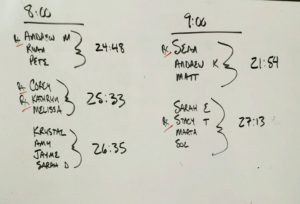 8:00
R: ANDREW M
RYAN
PETE
24:48
R: COREY
R: KATHRYN
MELISSA
25:33
KRYSTAL
AMY
JAYME
SARAH D
26:35
9:00
R: SEAN
ANDREW K
MATT
21:54
SARAH E
R: STACY T
MARTA
SOL
27:13